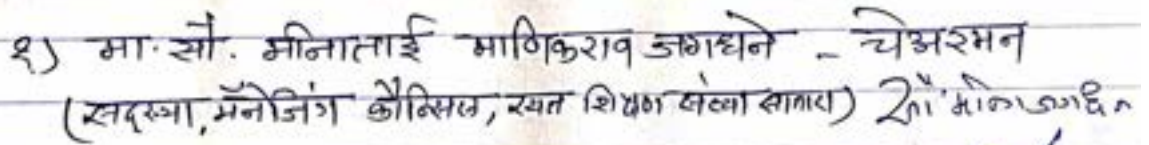 १) मा. सौ. मीनाताई माणिकराव जगधने - चेअरमन
(सदस्या, मॅनेजिंग कौन्सिल, रयत शिक्षण संस्था सातारा) सौ. मीना जगधने